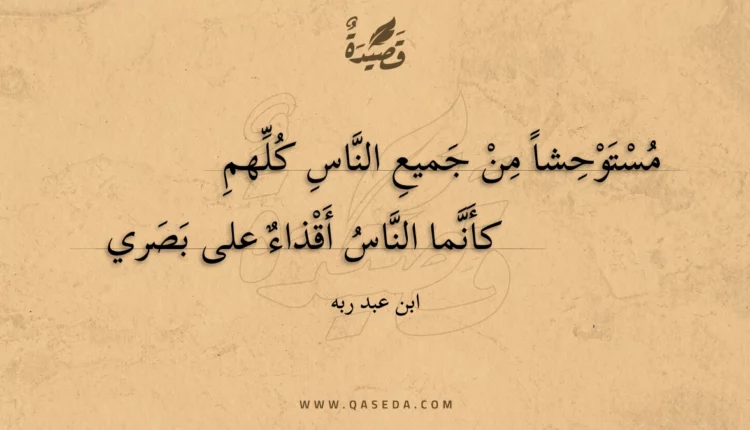 قَصِيْدَةٌ
مُسْتَوْحِشاً مِنْ جَميعِ النَّاسِ كُلِّهمِ
كأَنَّما النَّاسُ أَقْذاءٌ على بَصَري
ابن عبد ربه
WWW.QASEDA.COM